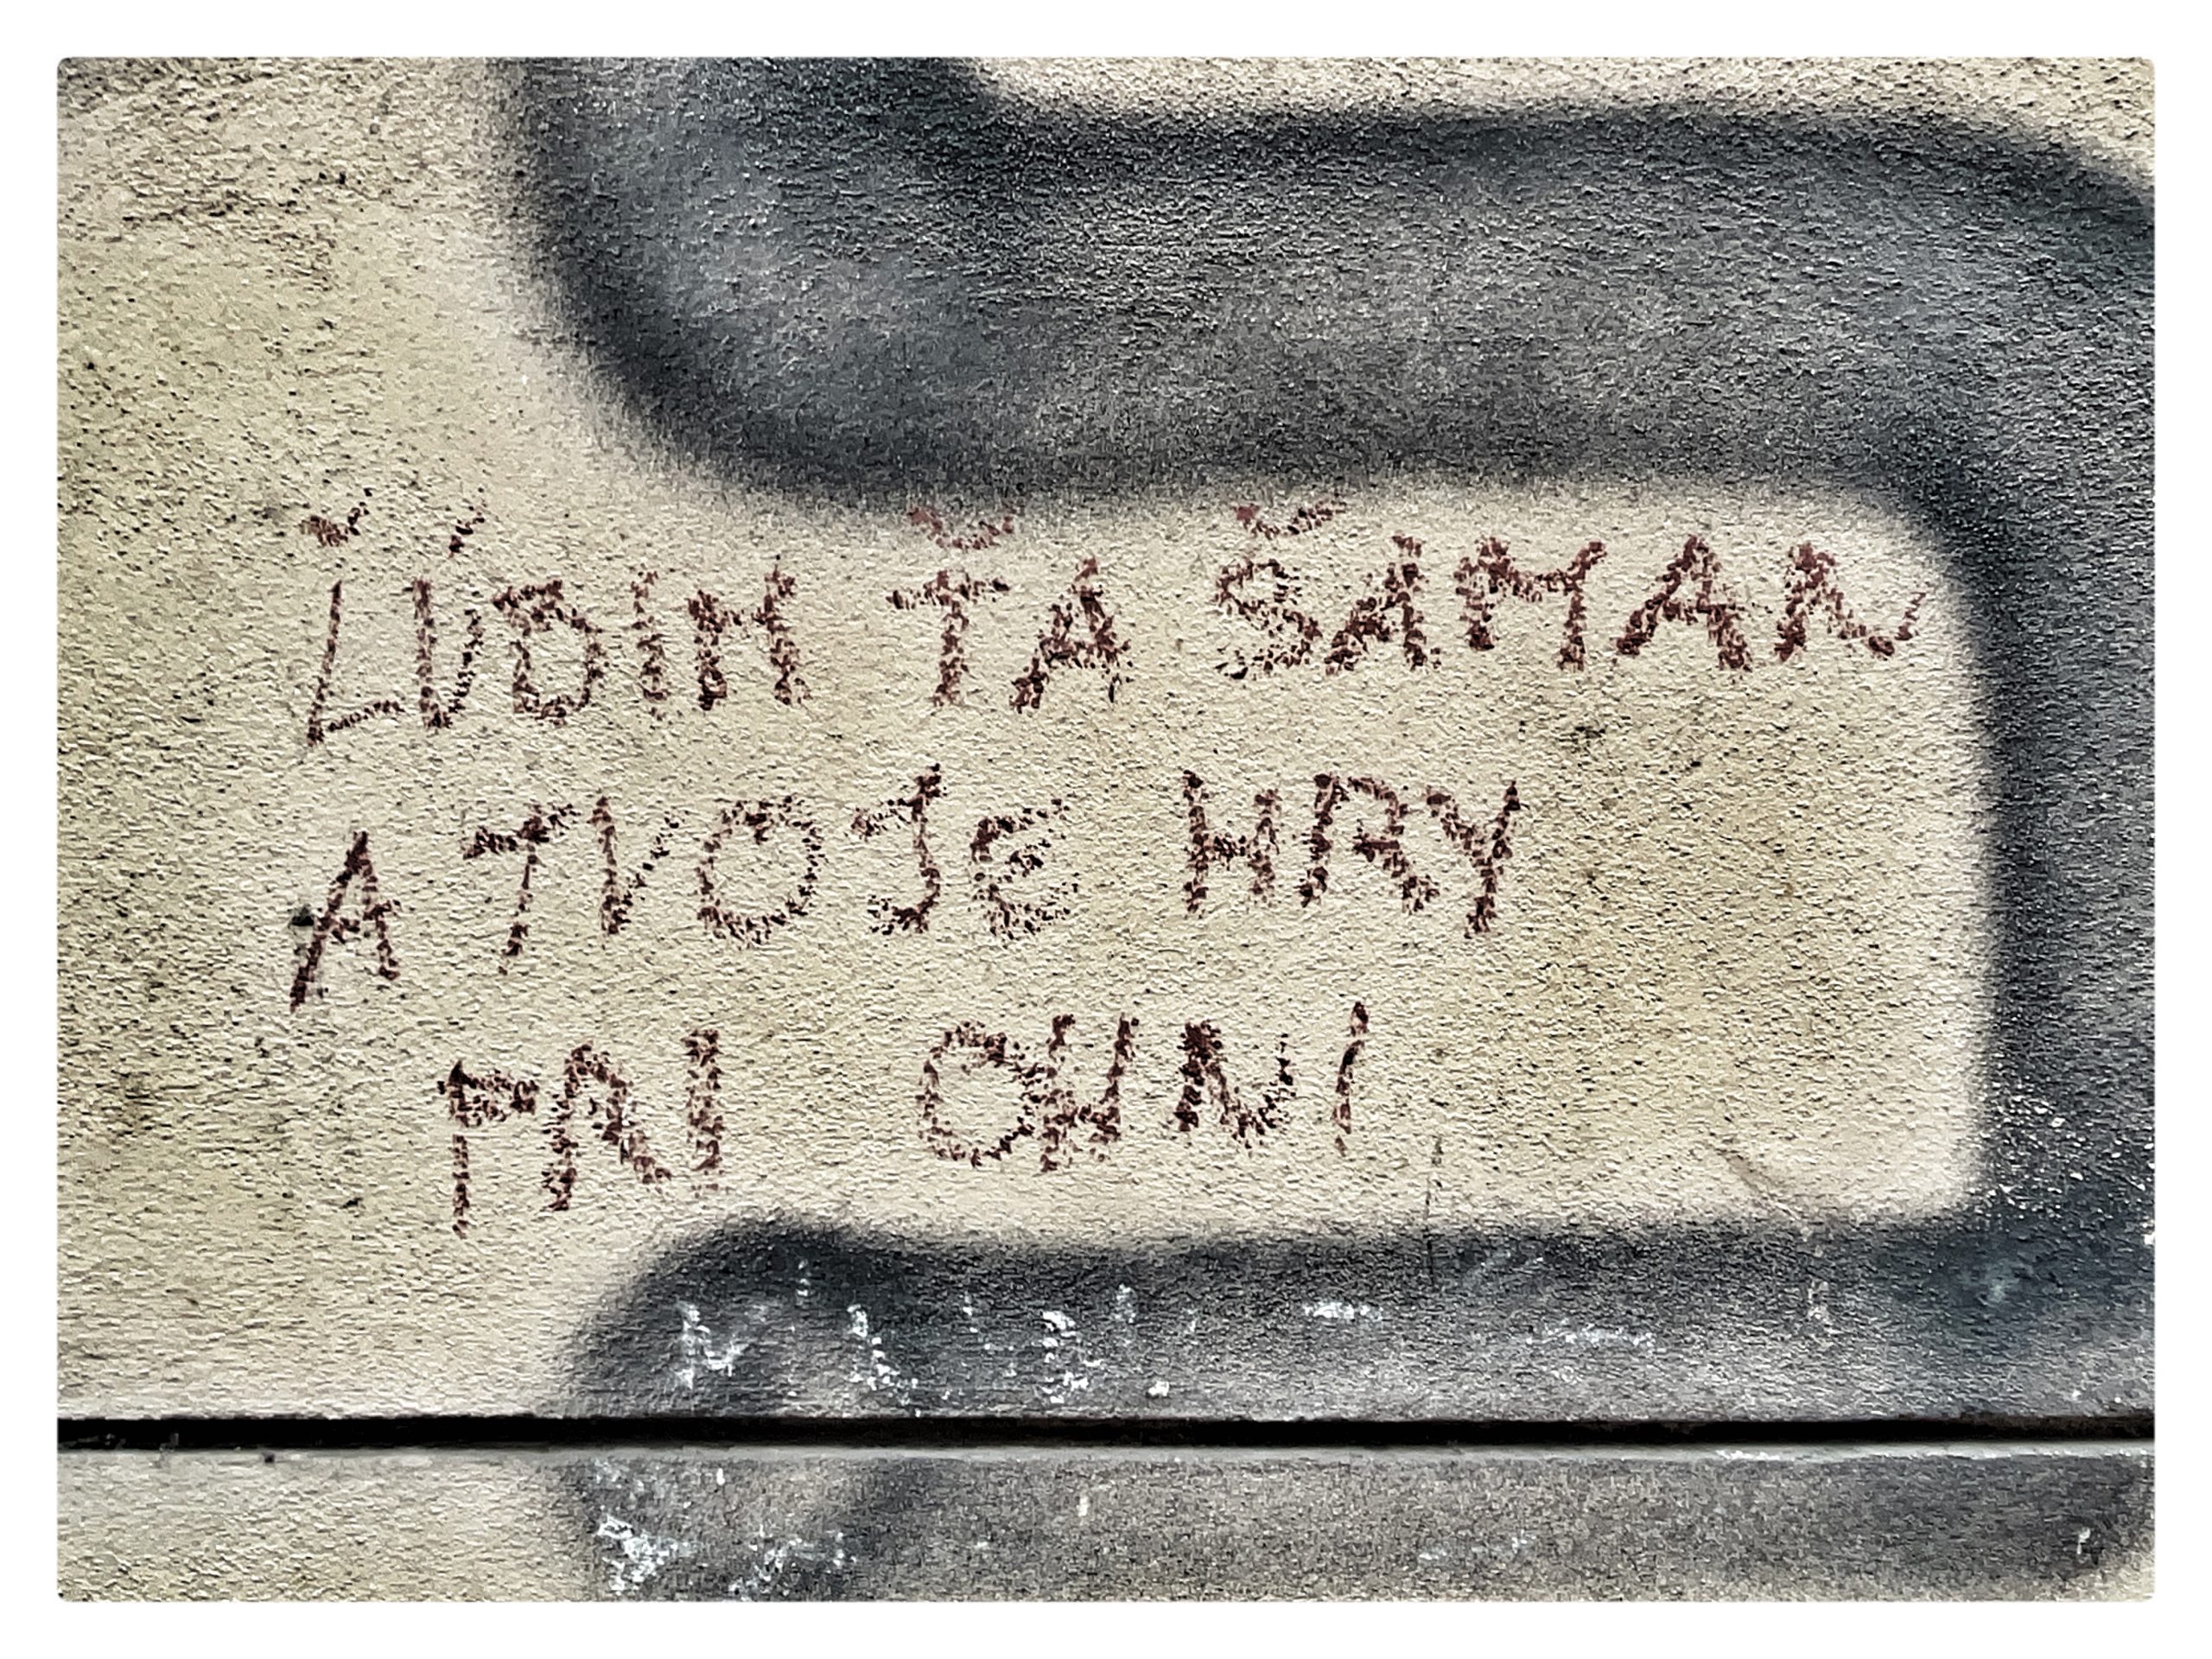 ĽÚBIM ŤA ŠAMAN
A TVOJE HRY
PRI OHNI